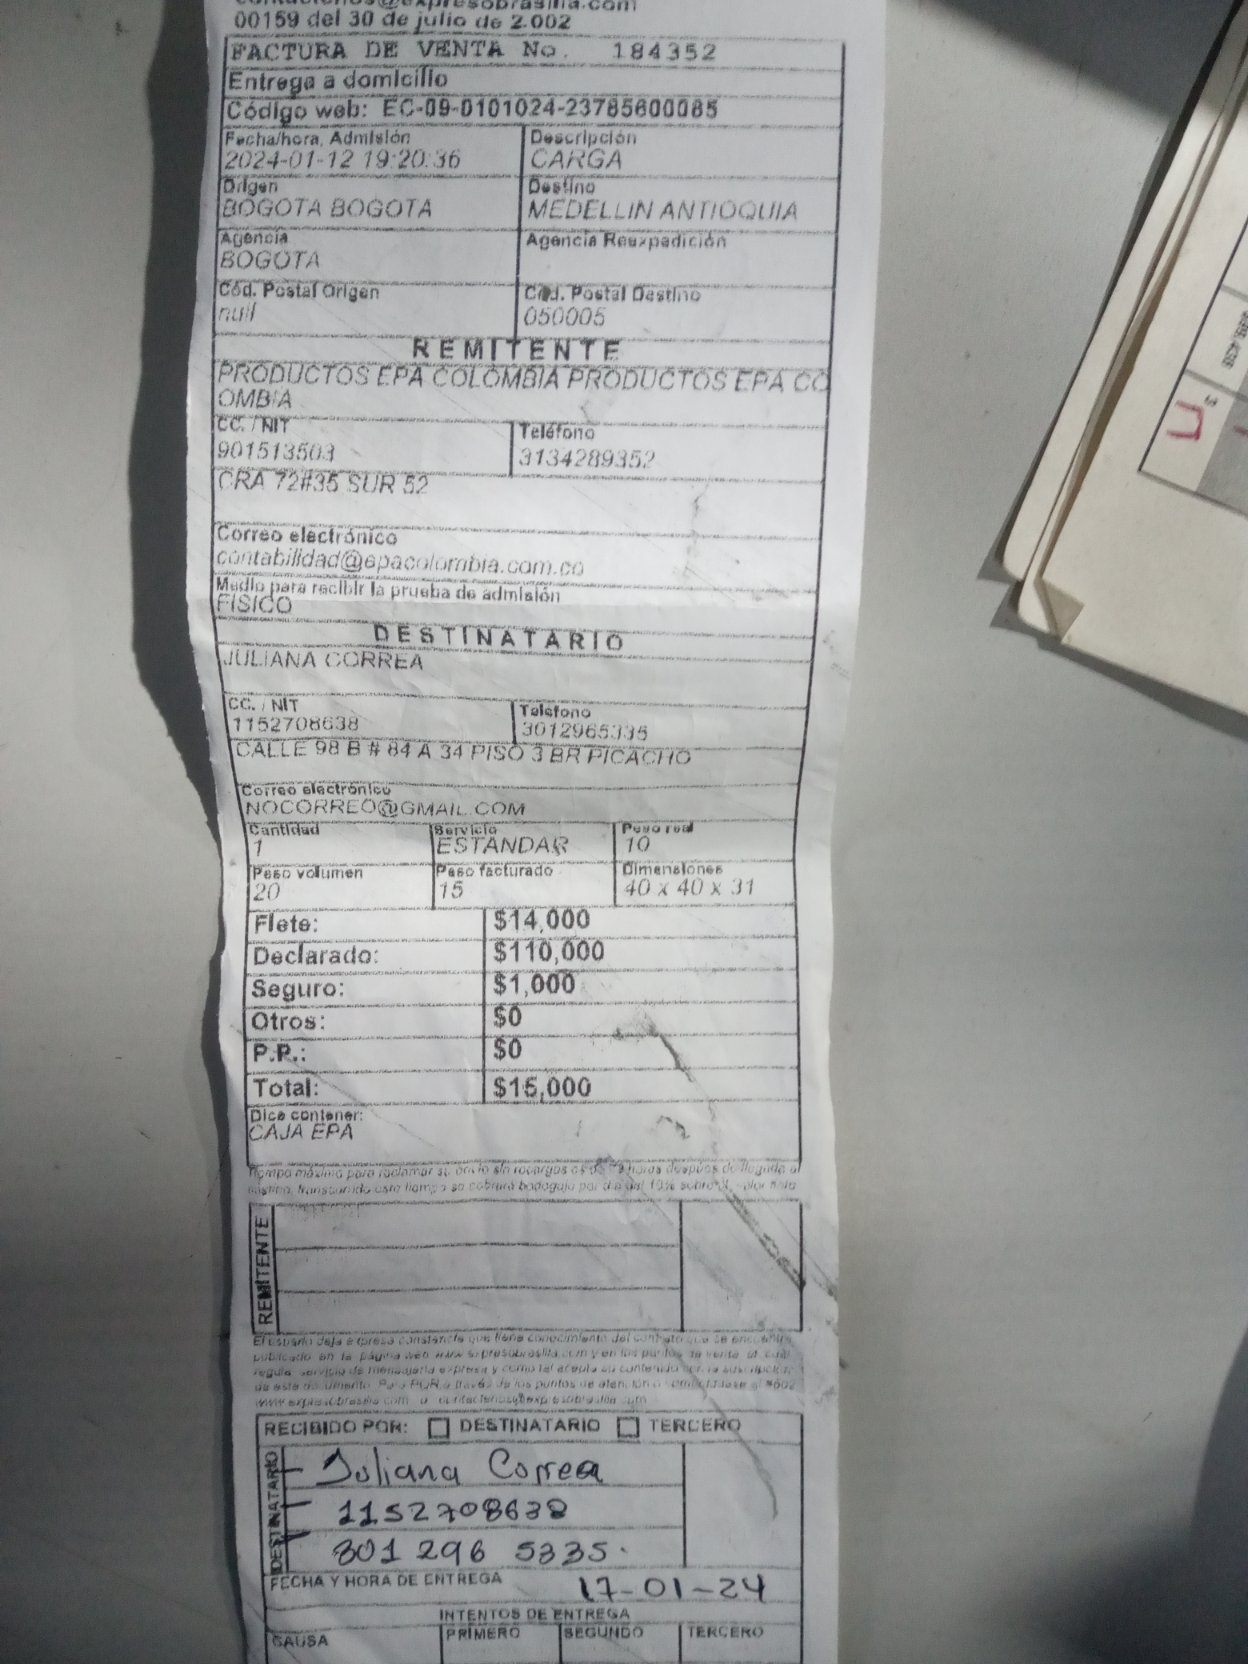 contactenos@expresobrasilia.com
00159 del 30 de julio de 2.002
FACTURA DE VENTA No. 184352
Entrega a domicilio
Código web: EC-09-0101024-23785600085
Fecha/hora, Admisión Descripción
2024-01-12 19:20:36 CARGA
Origen Destino
BOGOTA BOGOTA MEDELLIN ANTIOQUIA
Agencia Agencia Reexpedición
BOGOTA
Cód. Postal Origen Cód. Postal Destino
null 050005
REMITENTE
PRODUCTOS EPA COLOMBIA PRODUCTOS EPA CO
OMBIA
CC. / NIT Teléfono
901513503 3134289352
CRA 72#35 SUR 52
Correo electrónico
contabilidad@epacolombia.com.co
Medio para recibir la prueba de admisión
FISICO
DESTINATARIO
JULIANA CORREA
CC. / NIT Telefono
1152708638 3012965335
CALLE 98 B # 84 A 34 PISO 3 BR PICACHO
Correo electrónico
NOCORREO@GMAIL.COM
Cantidad Servicio Peso real
1 ESTANDAR 10
Peso volumen Peso facturado Dimensiones
20 15 40 x 40 x 31
Flete: $14,000
Declarado: $110,000
Seguro: $1,000
Otros: $0
P.P.: $0
Total: $15,000
Dice contener:
CAJA EPA
Tiempo máximo para reclamar su envío sin recargos es de 72 horas después de llegada al
destino, transcurrido este tiempo se cobrará bodegaje por día del 10% sobre el valor flete
REMITENTE
El usuario deja expresa constancia que tiene conocimiento del contrato que se encuentra
publicado en la página web www.expresobrasilia.com y en los puntos de venta el cual
regula servicio de mensajería expresa y como tal acepta su contenido con la suscripción
de este documento. Para PQR a través de los puntos de atención o
www.expresobrasilia.com o contactenos@expresobrasilia.com
RECIBIDO POR: DESTINATARIO TERCERO
DESTINATARIO
Juliana Correa
1152708638
301 296 5335.
FECHA Y HORA DE ENTREGA 17-01-24
INTENTOS DE ENTREGA
CAUSA PRIMERO SEGUNDO TERCERO